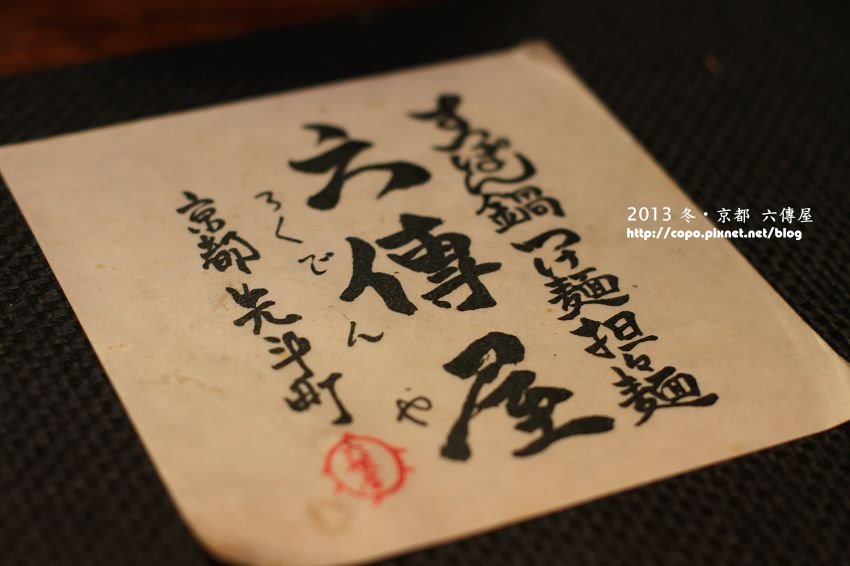 すっぽん鍋 つけ麺 担々麺
六傳屋
ろくでんや
京都 先斗町
2013 冬・京都 六傳屋
http://copo.pixnet.net/blog